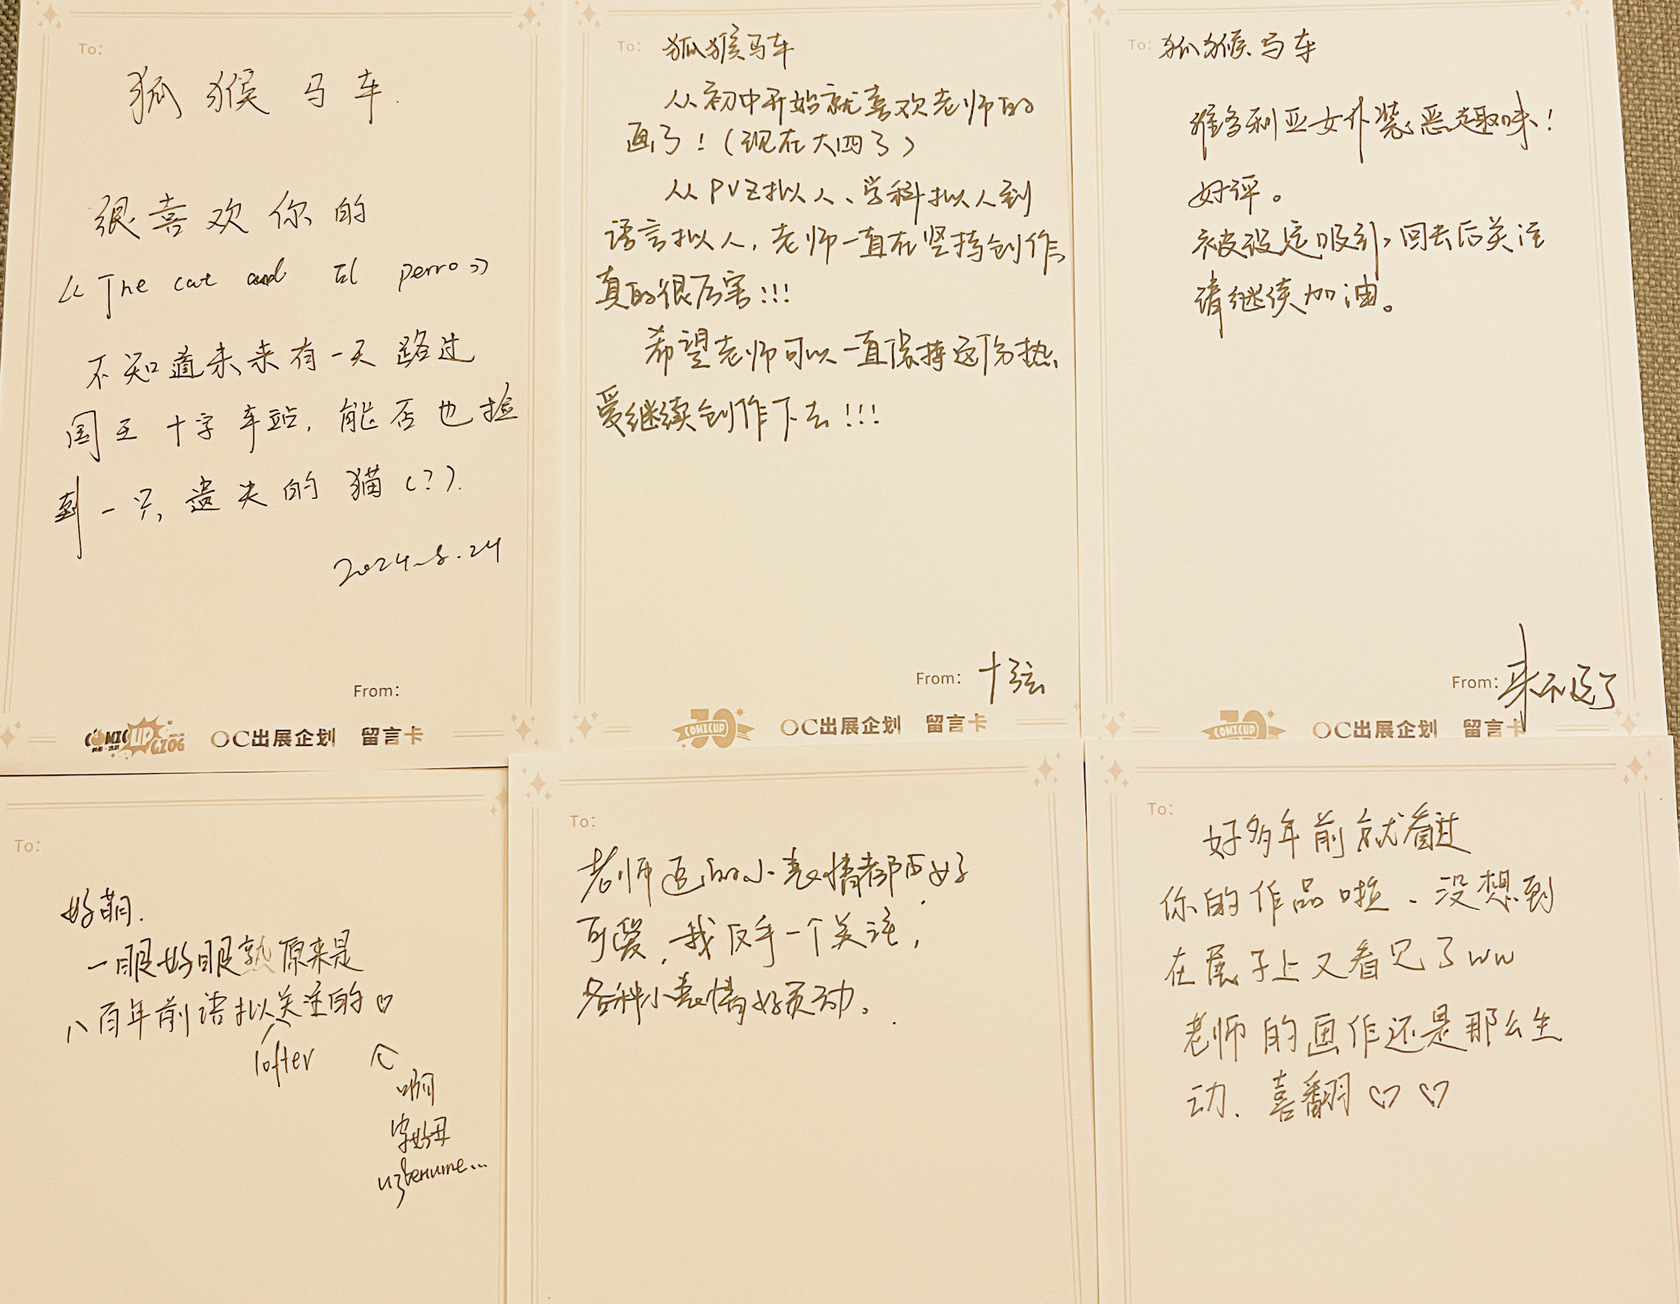 To:
狐猴马车.
很喜欢你的
《The cat and El perro》
不知道未来有一天路过
国王十字车站,能否也捡
到一只遗失的猫(?).
2024.8.24
From:
COMICUP
OC出展企划 留言卡
To: 狐猴马车
从初中开始就喜欢老师的
画了!(现在大四了)
从PVZ拟人、学科拟人到
语言拟人,老师一直在坚持创作,
真的很厉害!!!
希望老师可以一直保持这份热
爱继续创作下去!!!
From: 十弦
COMICUP OC出展企划 留言卡
To: 狐猴马车
维多利亚女仆装恶趣味!
好评。
被设定吸引,回去后关注
请继续加油。
From: 来不及了
COMICUP OC出展企划 留言卡
To:
好萌.
一眼好眼熟原来是
八百年前语拟关注的♡
lofter
啊
字好丑
извените...
To:
老师逗的小表情都画好
可爱,我反手一个关注,
各种小表情好灵动。
To:
好多年前就看过
你的作品啦、没想到
在展子上又看见了ww
老师的画作还是那么生
动、喜翻♡♡